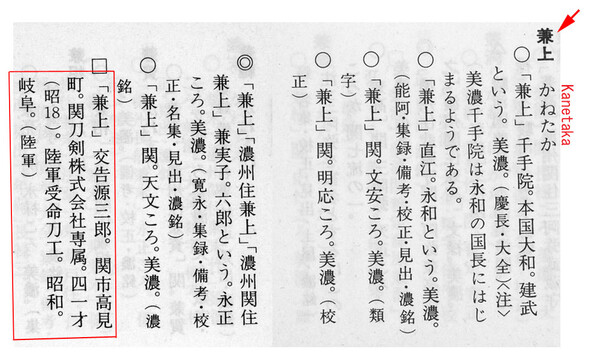 兼上
Kanetaka
かねたか
○「兼上」千手院。本国大和。建武
という。美濃。(慶長・大全)〈注〉
美濃千手院は永和の国長にはじ
まるようである。
○「兼上」直江。永和という。美濃。
(能阿・集録・備考・校正・見出・濃銘)
○「兼上」関。文安ころ。美濃。(類
字)
○「兼上」関。明応ころ。美濃。(校
正)
◎「兼上」「濃州住兼上」「濃州関住
兼上」兼実子。六郎という。永正
ころ。美濃。(寛永・集録・備考・校
正・名集・見出・濃銘)
○「兼上」関。天文ころ。美濃。(濃
銘)
□「兼上」交告源三郎。関市高見
町。関刀剣株式会社専属。四一才
(昭18)。陸軍受命刀工。昭和。
岐阜。(陸軍)